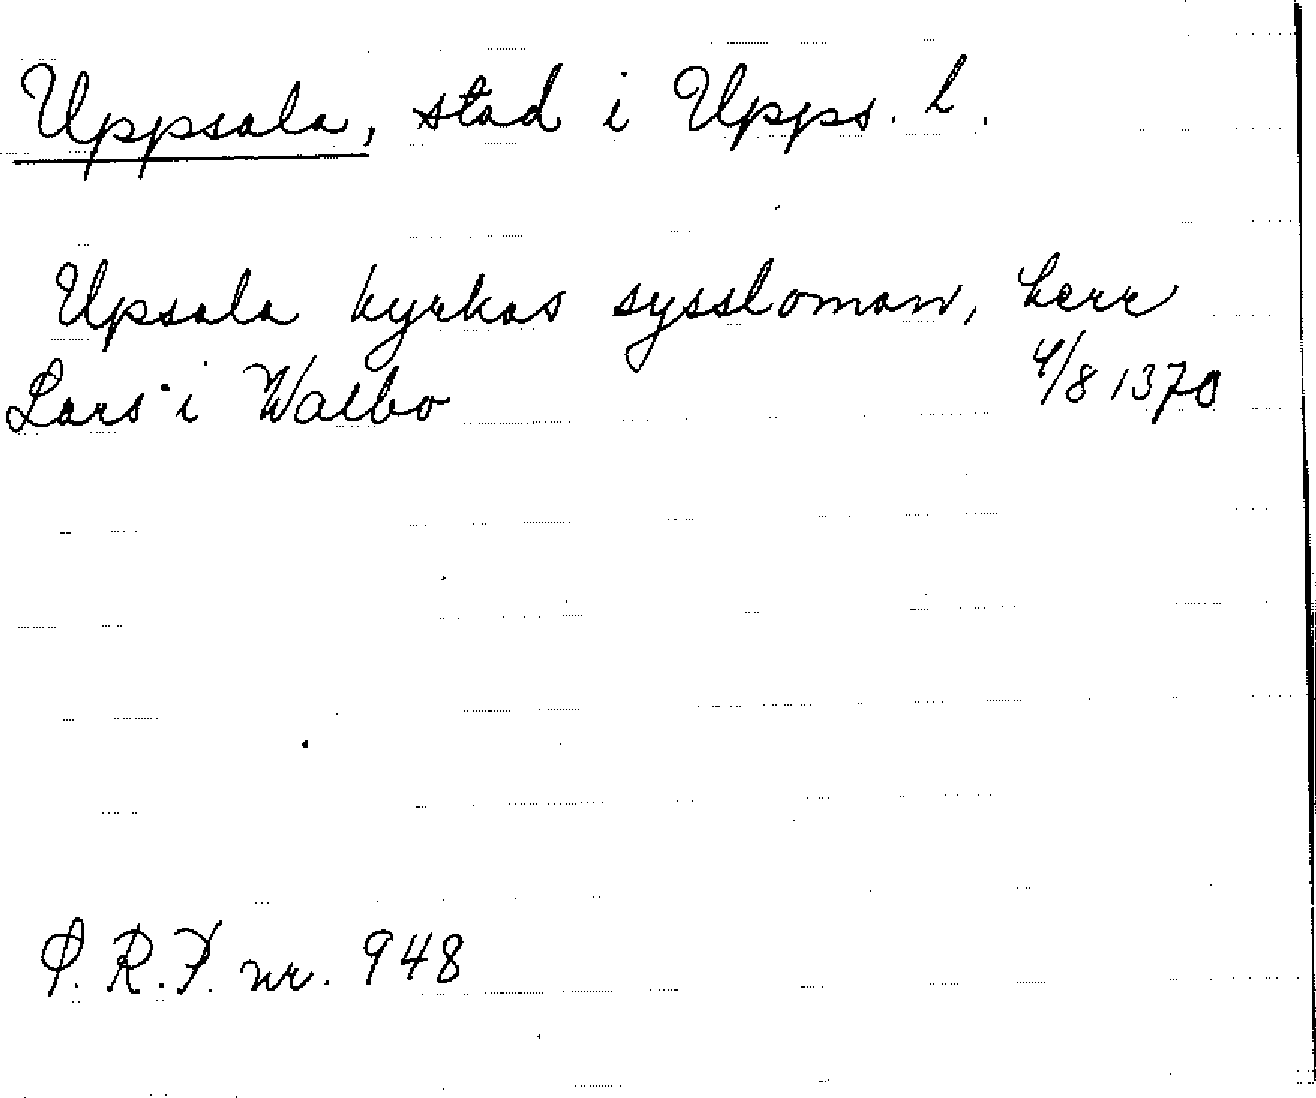 Uppsala, stad i Upps. l.
Upsala kyrkas syssloman, herr
Lars i Walbo 4/8 1370
P. R. P. nr. 948